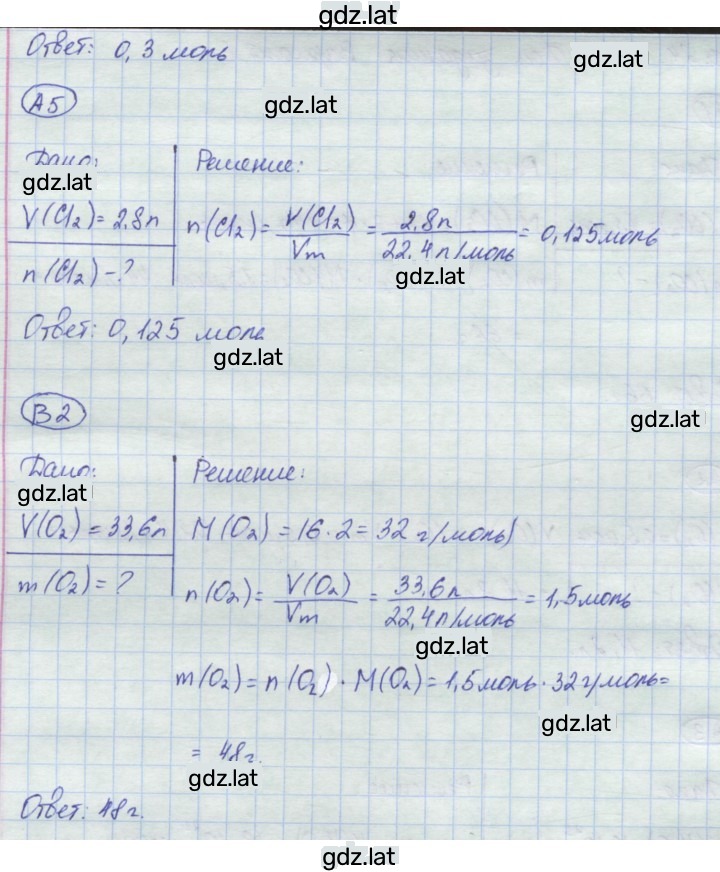 gdz.lat
Ответ: 0,3 моль
gdz.lat
А5
gdz.lat
Дано:
Решение:
gdz.lat
V(Cl₂)=2,8л
n(Cl₂) = V(Cl₂)/Vm = 2,8л/22,4л/моль = 0,125моль
n(Cl₂)-?
gdz.lat
Ответ: 0,125 моль
gdz.lat
В2
gdz.lat
Дано:
Решение:
gdz.lat
V(O₂) = 33,6л
M(O₂) = 16·2 = 32 г/моль)
m(O₂) = ?
n(O₂) = V(O₂)/Vm = 33,6л/22,4л/моль = 1,5моль
gdz.lat
m(O₂) = n(O₂) · M(O₂) = 1,5моль · 32г/моль =
gdz.lat
= 48г.
gdz.lat
Ответ: 48г.
gdz.lat